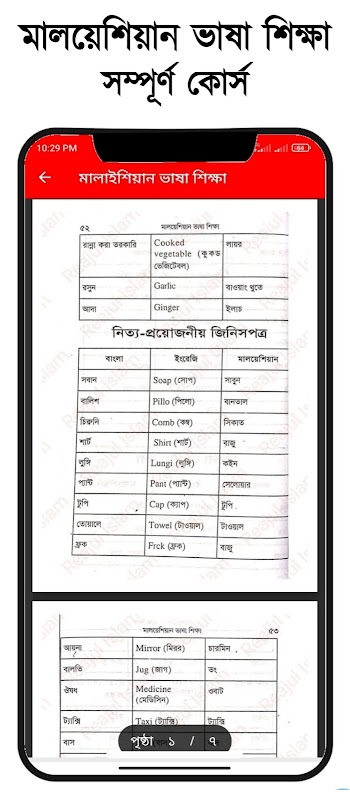 মালয়েশিয়ান ভাষা শিক্ষা
সম্পূর্ণ কোর্স
10:29 PM
64
মালাইশিয়ান ভাষা শিক্ষা
৫২ মালয়েশিয়ান ভাষা শিক্ষা
রান্না করা তরকারি Cooked vegetable (কুকড ভেজিটেবল) লায়র
রসুন Garlic বাওয়াং পুতে
আদা Ginger ইলাচ
নিত্য-প্রয়োজনীয় জিনিসপত্র
বাংলা ইংরেজি মালয়েশিয়ান
সবান Soap (সোপ) সাবুন
বালিশ Pillo (পিলো) বানতাল
চিরুনি Comb (কম্ব) সিকাত
শার্ট Shirt (শার্ট) বাজু
লুঙ্গি Lungi (লুঙ্গি) কইন
প্যান্ট Pant (প্যান্ট) সেলোয়ার
টুপি Cap (ক্যাপ) টুপি
তোয়ালে Towel (টাওয়াল) টাওয়াল
ফ্রক Frck (ফ্রক) বাজু
মালয়েশিয়ান ভাষা শিক্ষা ৫৩
আয়না Mirror (মিরর) চারমিন
বালতি Jug (জাগ) তং
ঔষধ Medicine (মেডিসিন) ওবাট
ট্যাক্সি Taxi (ট্যাক্সি) ট্যাক্সি
বাস বাস
পৃষ্ঠা ১ / ৭